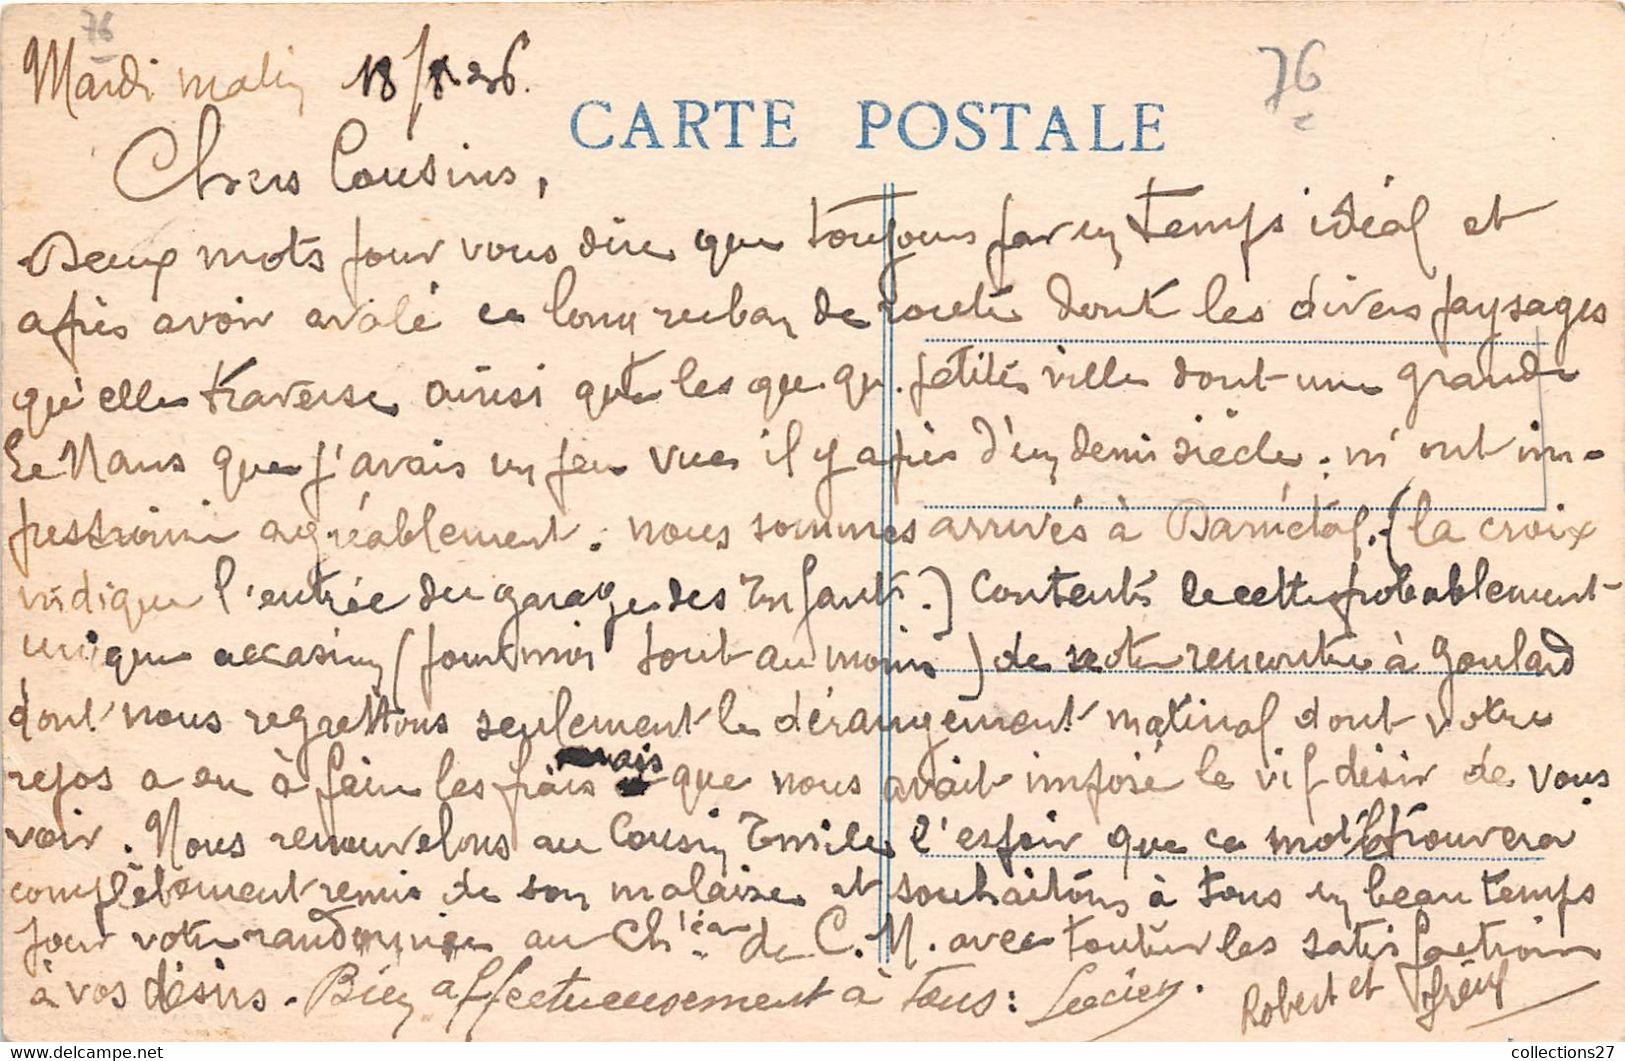 76
Mardi matin 18/8 36.
76
CARTE POSTALE
Chers Cousins,
Deux mots pour vous dire que toujours par un temps idéal et
après avoir avalé ce long ruban de route dont les divers paysages
qu'elle traverse ainsi que les que qu. petites ville dont une grande
Le Mans que j'avais un peu vue il y a près d'un demi siècle. m'ont im-
pressionné agréablement. nous sommes arrivés à Darnétal. (la croix
indique l'entrée du garage des Enfants.) Contents de cette probablement
unique occasion (pour moi tout au moins) de notre rencontre à Goulard
dont nous regrettons seulement le dérangement matinal dont votre
repos a eu à faire les frais mais que nous avait imposé le vif désir de vous
voir. Nous renouvelons au Cousin Emile l'espoir que ce mot le trouvera
complètement remis de son malaise et souhaitons à tous un beau temps
pour votre randonnée au Ch'eau de C. M. avec toutes les satisfaction
à vos désirs. Bien affectueusement à tous: Lucien.
Robert et